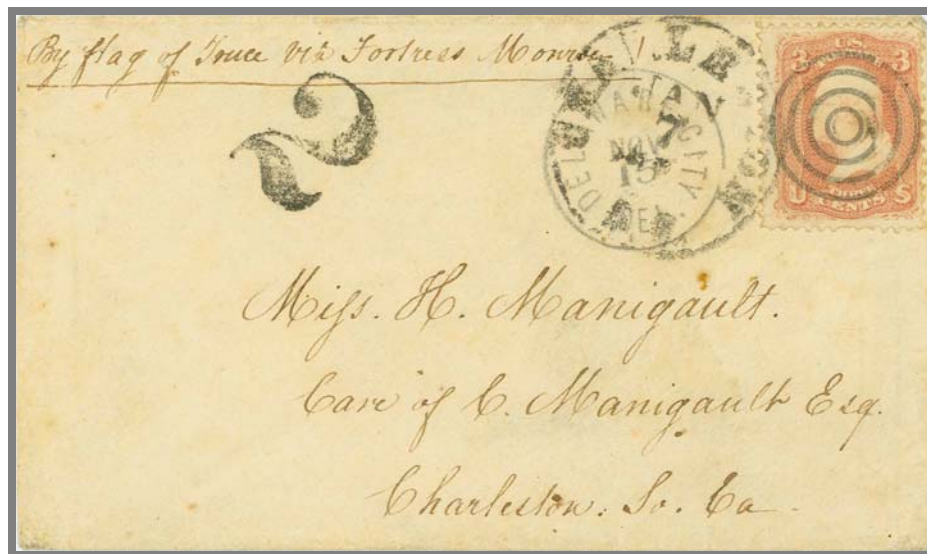 By flag of Truce via Fortress Monroe
2
DELAWARE CITY
NOV
15
DEL.
JAN
7
U.S.
3 3
U S
THREE
CENTS
Miſs. H. Manigault.
Care of C. Manigault Esq.
Charleston. So. Ca.